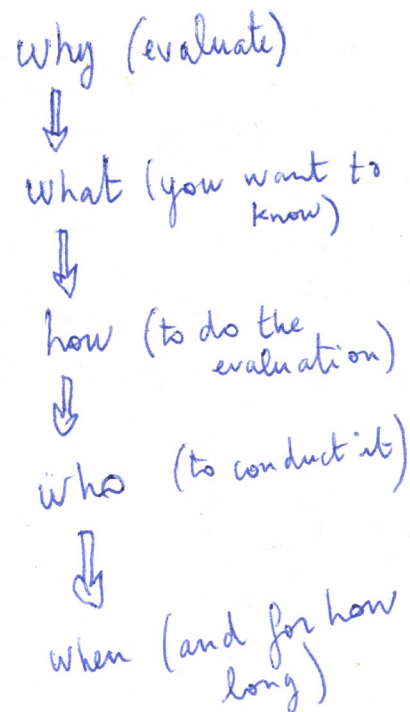 why (evaluate)
what (you want to
know)
how (to do the
evaluation)
who (to conduct it)
when (and for how
long)